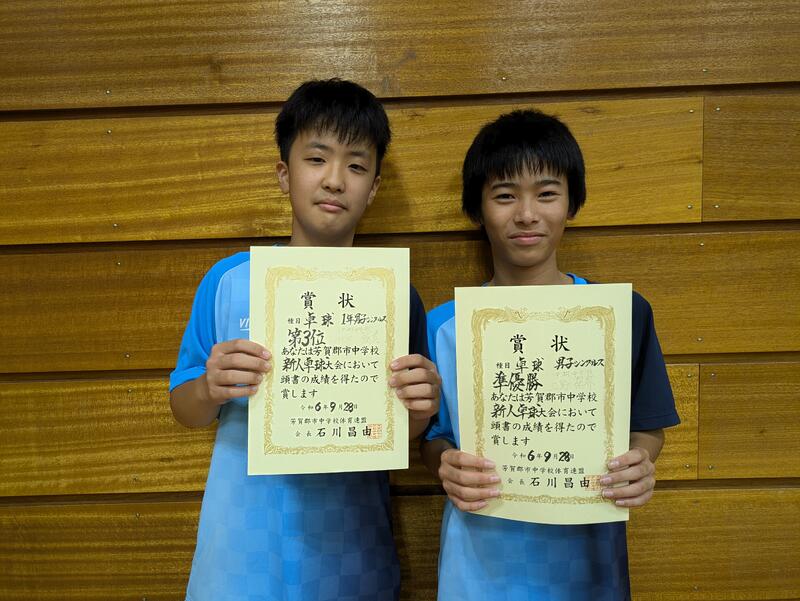 賞状
種目 卓球 1年男子シングルス
第3位
あなたは芳賀郡市中学校
新人卓球大会において
頭書の成績を得たので
賞します
令和6年9月28日
芳賀郡市中学校体育連盟
会長 石川昌由
賞状
種目 卓球 男子シングルス
準優勝
あなたは芳賀郡市中学校
新人卓球大会において
頭書の成績を得たので
賞します
令和6年9月28日
芳賀郡市中学校体育連盟
会長 石川昌由